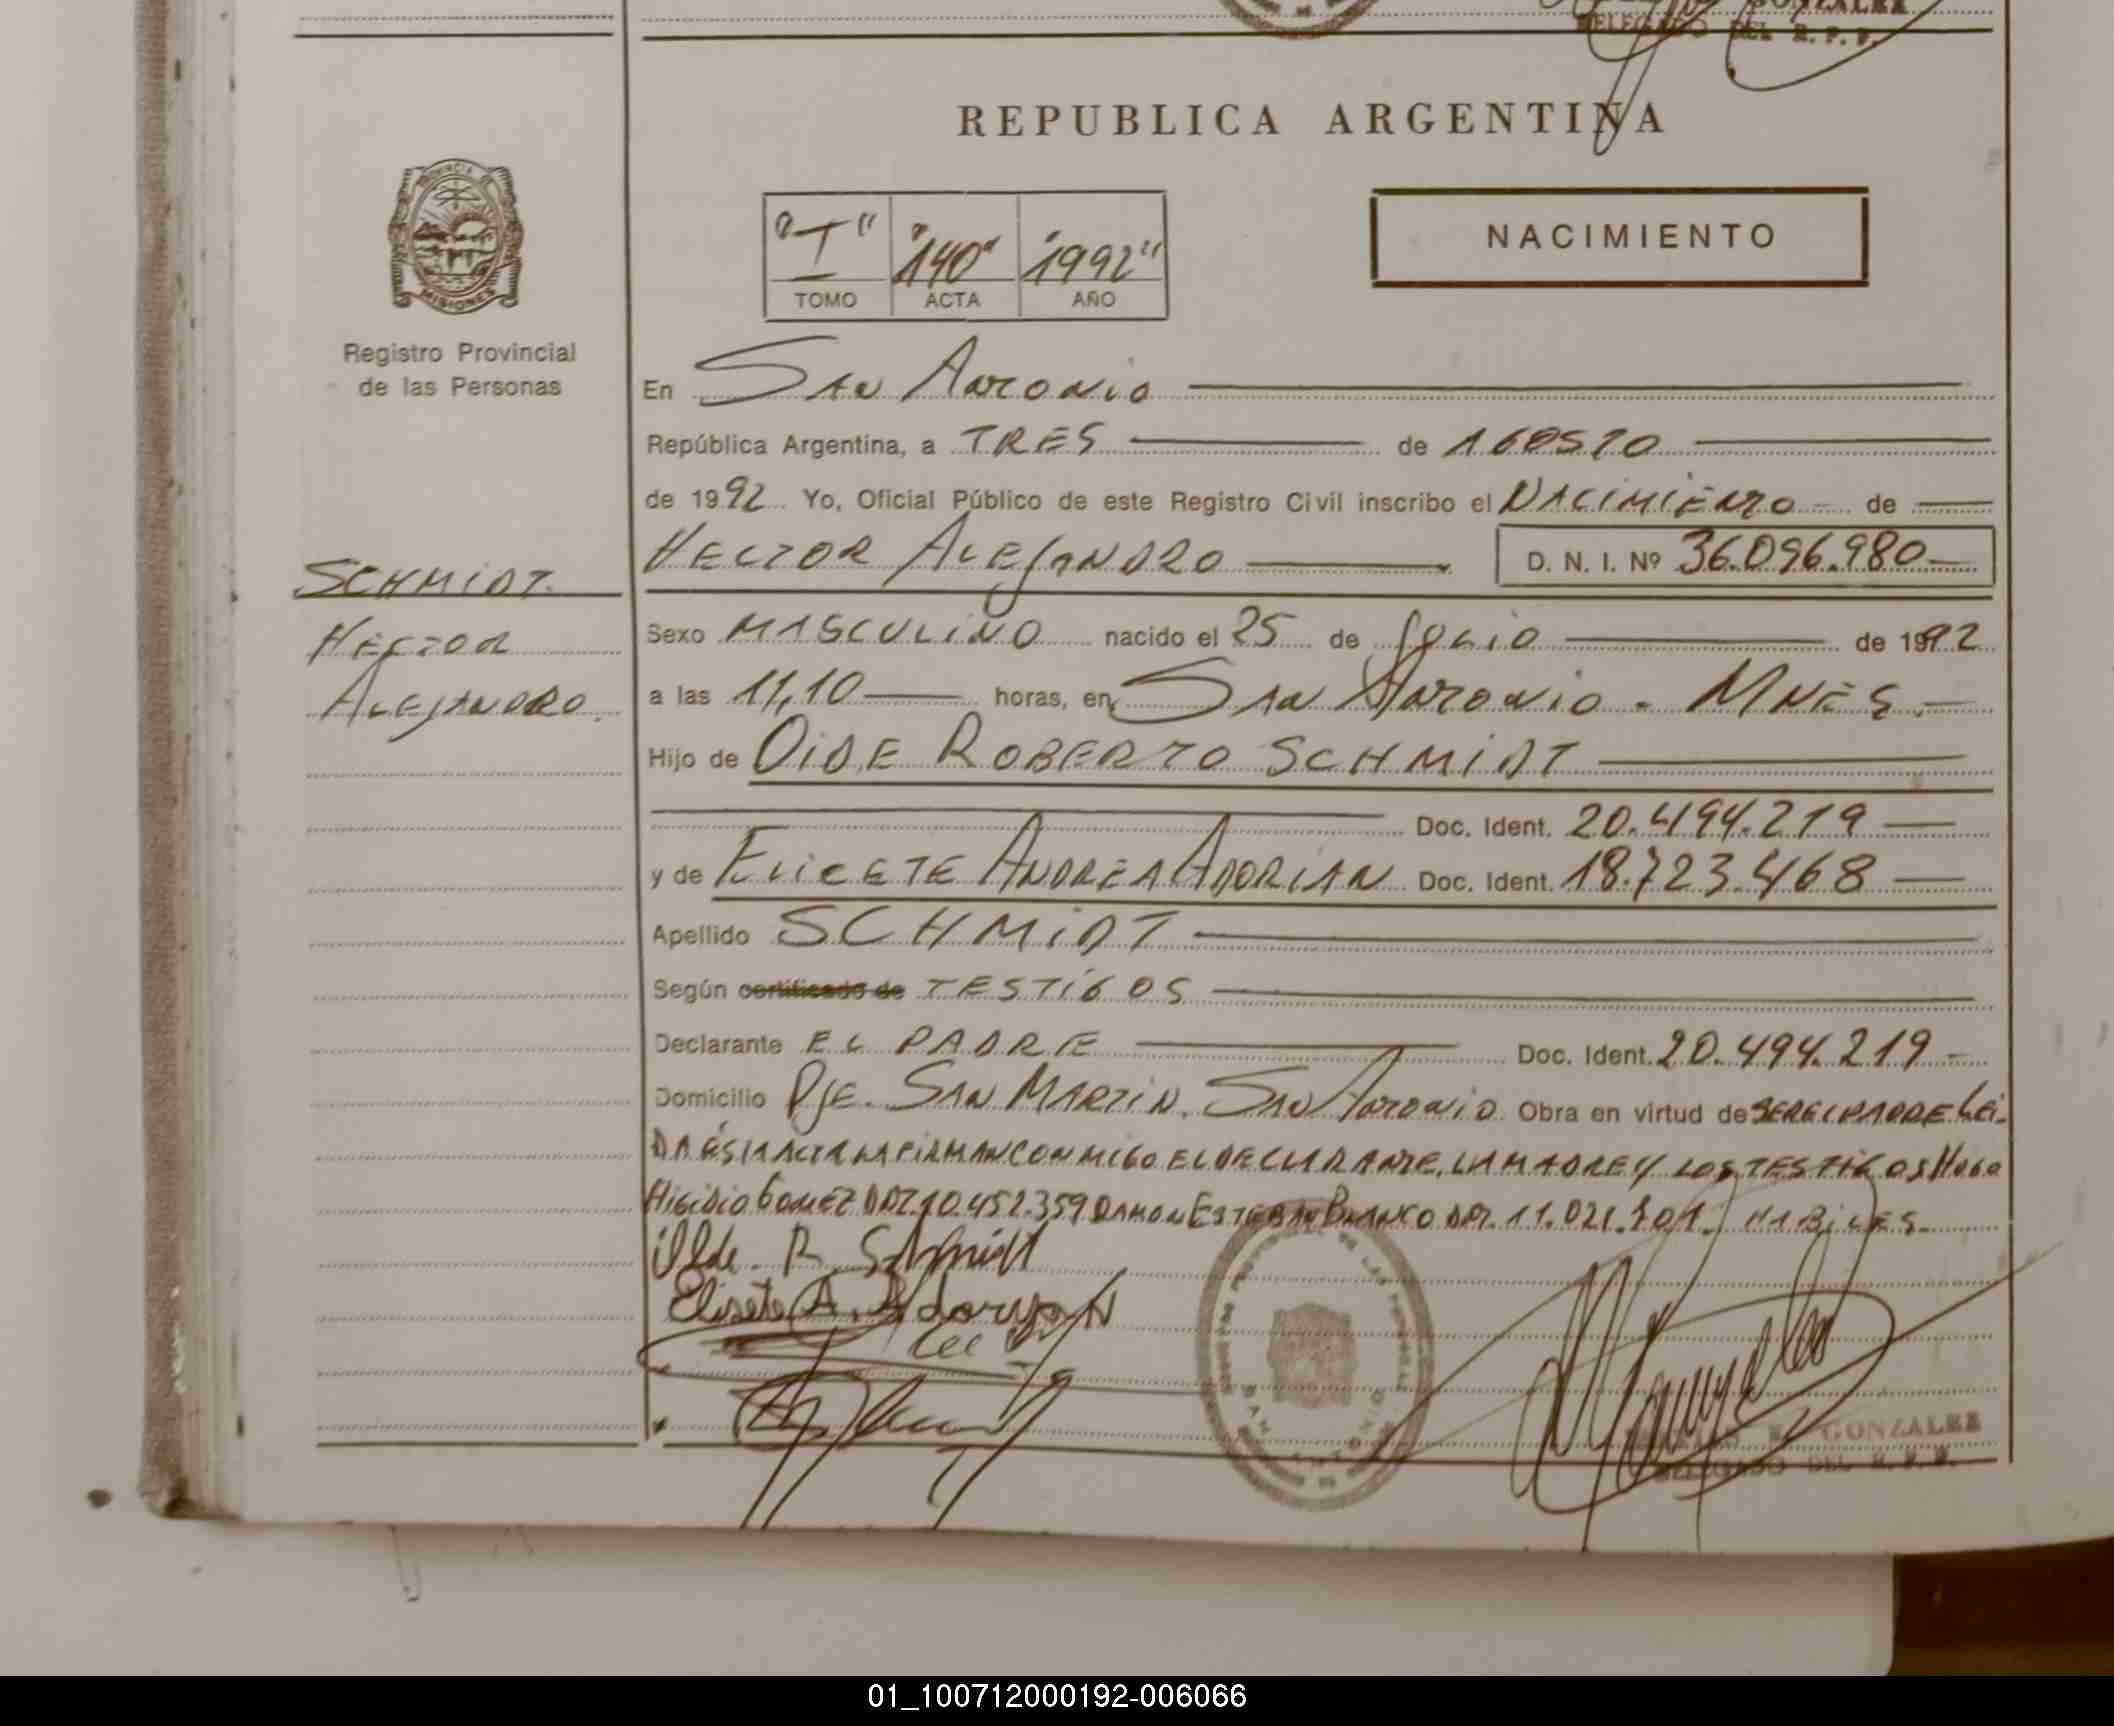 GONZALEZ
DELEGADO DEL R. P. P.
REPUBLICA ARGENTINA
PROVINCIA DE
MISIONES
Registro Provincial
de las Personas
"I" "140" "1992"
TOMO ACTA AÑO
NACIMIENTO
En San Antonio
República Argentina, a TRES de AGOSTO
de 1992 Yo, Oficial Público de este Registro Civil inscribo el NACIMIENTO de
HECTOR ALEJANDRO D. N. I. Nº 36.096.980
SCHMIDT
HECTOR
ALEJANDRO.
Sexo MASCULINO nacido el 25 de Julio de 1992
a las 11,10 horas, en SAN ANTONIO - MNES
Hijo de OIDE ROBERTO SCHMIDT
Doc. Ident. 20.494.219
y de ELICETE ANDREA ADORIAN Doc. Ident. 18.723.468
Apellido SCHMIDT
Según certificado de TESTIGOS
Declarante EL PADRE Doc. Ident. 20.494.219
Domicilio PJE. SAN MARTIN. SAN ANTONIO Obra en virtud de SER EL PADRE LEI-
DA ÉSTA ACTA LA FIRMAN CONMIGO EL DECLARANTE, LA MADRE Y LOS TESTIGOS HUGO
HIGIDIO GOMEZ DNI. 10.452.359 RAMON ESTEBAN BLANCO DNI. 11.021.101. HABILES.
Ilde. R. Schmidt
Elisete A. Adoryan
GONZALEZ
DELEGADO DEL R. P. P.
01_100712000192-006066